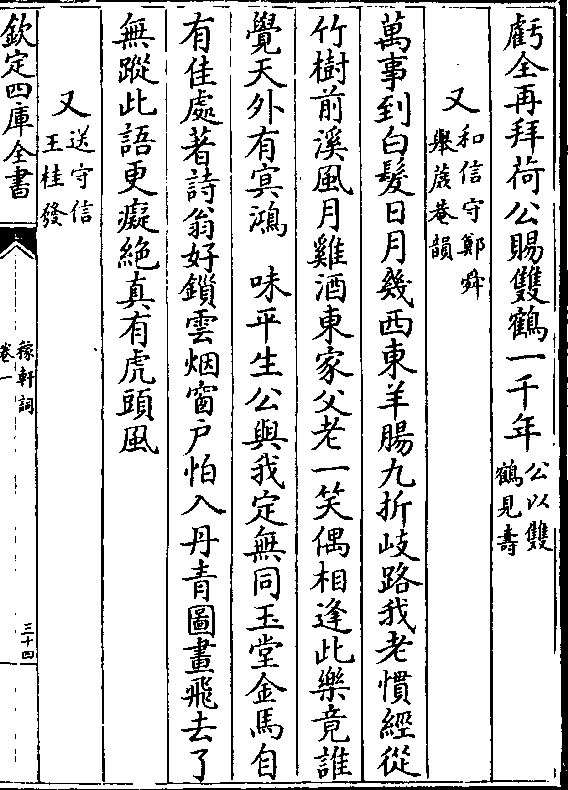 虧全再拜荷公賜雙鶴一千年公以雙
鶴見壽
又和信守鄭舜
舉蔗菴韻
萬事到白髮日月幾西東羊腸九折岐路我老慣經從
竹樹前溪風月雞酒東家父老一笑偶相逢此樂竟誰
覺天外有㝠鴻　味平生公與我定無同玉堂金馬自
有佳處著詩翁好鎖雲烟窗户怕入丹青圖畫飛去了
無蹤此語更癡絶真有虎頭風
又送守信
王桂發
欽定四庫全書
稼軒詞
卷一
三十四